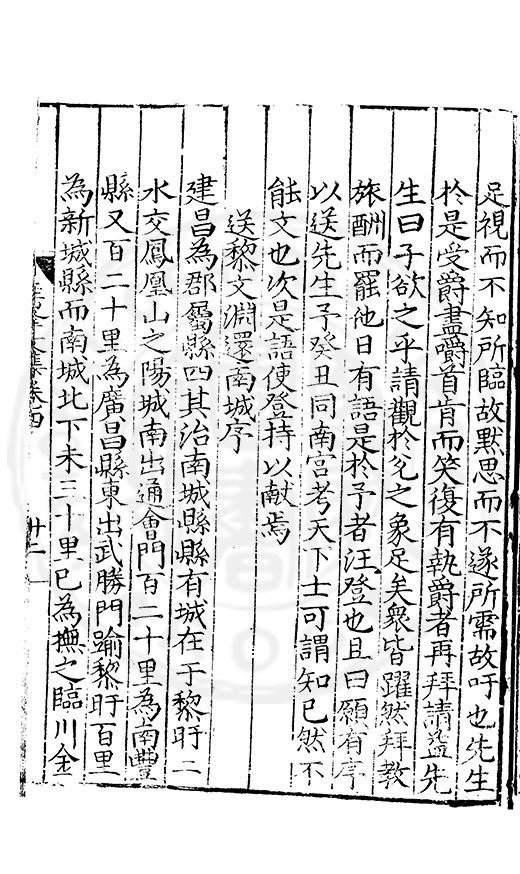 足視而不知所臨故默思而不遂所需故吁也先生
於是受爵盡嚼首肯而笑復有執爵者再拜請益先
生曰子欲之乎請觀於兌之象足矣衆皆躍然拜教
旅酬而罷他日有語是於予者汪登也且曰願有序
以送先生予癸丑同南宫考天下士可謂知已然不
能文也次是語使登持以献焉
送黎文淵還南城序
建昌為郡屬縣四其治南城縣縣有城在于黎盱二
水交鳳凰山之陽城南出通會門百二十里為南豐
縣又百二十里為廣昌縣東出武勝門踰黎盱百里
為新城縣而南城北下未三十里已為撫之臨川金
文集卷四
廿二